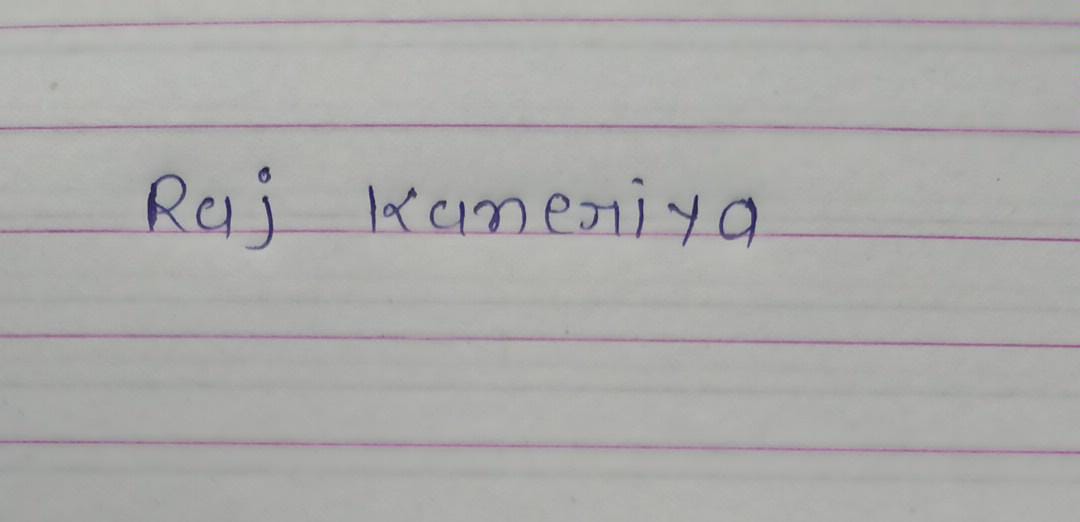 Raj Kaneriya